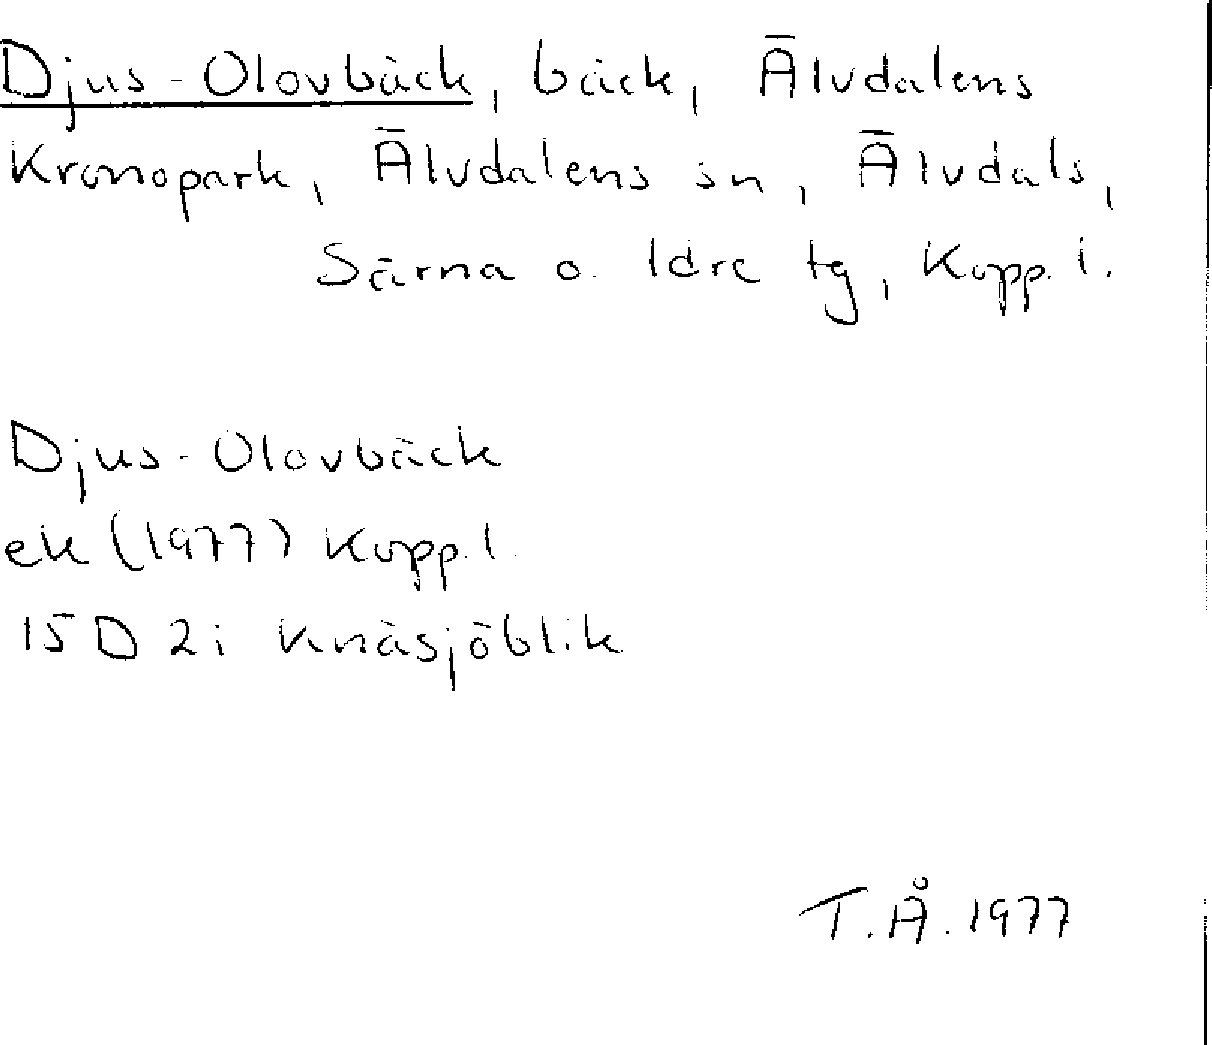 Djus-Olovbäck, bäck, Älvdalens
Kronopark, Älvdalens sn, Älvdals,
Särna o. Idre tg, Kopp. l.
Djus-Olovbäck
ek (1977) Kopp. l.
15 D 2i Knäsjöblik
T.Å. 1977